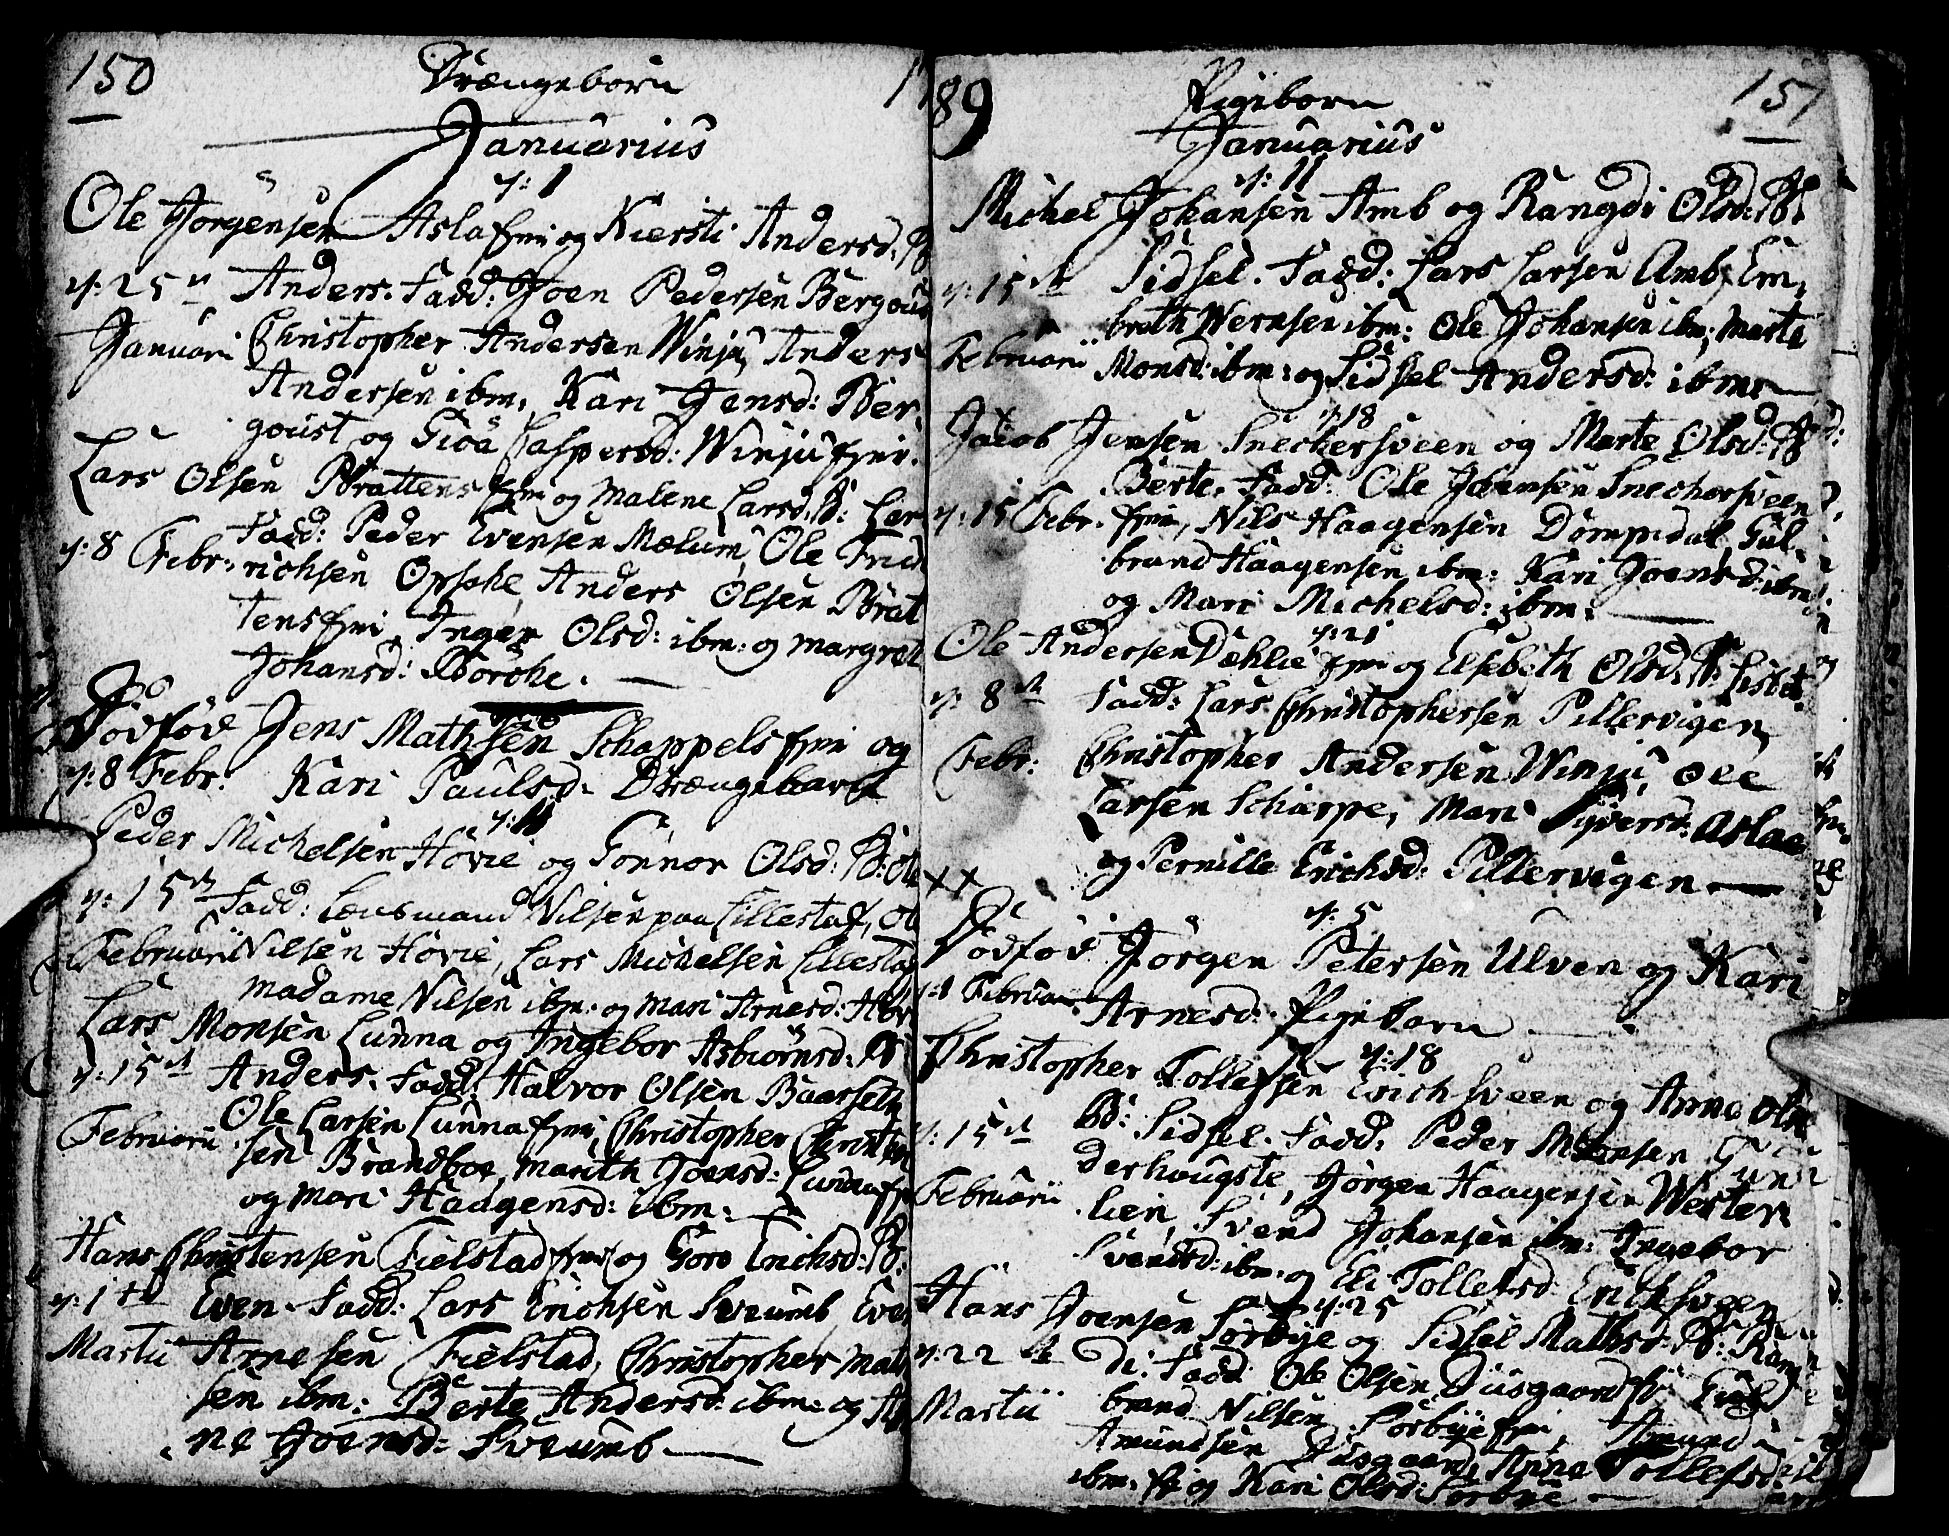 150 Drængeborn 17
Januarius
d: 1
Ole Jørgensen Aslafmi og Kiersti Andersd: B
d: 25 Anders. Fadd: Joen Pedersen Bergous
Januari Christopher Andersen Winju, Anders
Andersen ibm, Kari Jensd: Ber-
goust og Gioa Caspersd: Winjufmi.
Lars Olsen Brattens fmi og Malene Larsd: B: Lar
Fadd: Peder Evensen Mælum, Ole Frid
d: 8 Febr. richsen Opsahe, Anders Olsen Brat
tensfmi, Inger Olsd: ibm: og Margret
Johansd: Borohe.
Dödföd Jens Mathsen Schappels fmi og
d: 8 Febr. Kari Paulsd. Drængebarn
d: 11
Peder Michelsen Hövie og Gonnor Olsd: B: Ole
d: 15 Fadd: Lensmand Nilsen paa Lillestaf, Ol
Februarii Nilsen Hövie, Lars Michelsen Lillestaf
madame Nilsen ibm. og Mari Arnesd: Höv
Lars Monsen Lunna og Ingebor Asbiörnsd: B
d: 15 Anders. Fadd: Halvor Olsen Baarseth
Ole Larsen Lunnafmi, Christopher Christen
Februarii sen Brandboe, Marith Joensd: Lunnafm
og Mari Haagensd: ibm.
Hans Christensen Fielstad fmi og Goro Erichsd: B:
d: 1 Even. Fadd: Lars Erichsen Sveumb, Even
Martii Arnesen Fielstad, Christopher Mat
sen ibm: Berte Andersd: ibm. og An
ne Joensd: Sveumb.
89 Pigeborn 151
Januarius
d: 11
Michel Johansen Amb og Rangdi Olsd: B:
d: 15 Sidsel. Fadd: Lars Larsen Amb, Em,
brath Wernsen ibm: Ole Johansen ibm, Marte
Februarii Monsd: ibm: og Sidsel Andersd: ibm.
d: 18
Jacob Jensen Sneckersveen og Marte Olsd: B
Berte. Fadd: Ole Johansen Snechersveen
d: 15 Febr. fmi, Nils Haagensen Dompidal, Gul-
brand Haagensen ibm: Kari Joensd: ibm:
og Mari Michelsd: ibm:
d: 21
Ole Andersen Dæhlie fmi og Elsebeth Olsd: B: Lisbet
d: 8 Fadd: Lars Christophersen Pillervigen,
Febr: Christopher Andersen Winju, Ole
Larsen Schiærpe, Mari Syversd: Aslae
og Pernille Erichsd: Pillervigen
xx
d: 5
Dödföd Jörgen Petersen Ulven og Kari
d: 1 Februar Arnesd: Pigebarn
d: 18
Christopher Tollefsen Erichsveen og Anne Ols
d: 15 Bd: Sidsel. Fadd: Peder Monsen Gun
derhougste, Jörgen Haagensen Wester
Februarii lien, Svend Johansen ibm: Ingebor
Svendsd: ibm. og Eli Tollefsd: Erichsveen
d: 25
Hans Joensen Sörbye og Sidsel Mathsd: B: Rang
d: 22 di. Fadd: Ole Olsen Diisgaard, Gul
Martii brand Nilsen Sörbyefmi, Amund
Amundsen Diisgaard, Anne Tollefsd:
ibm. og Kari Olsd: Sörbye